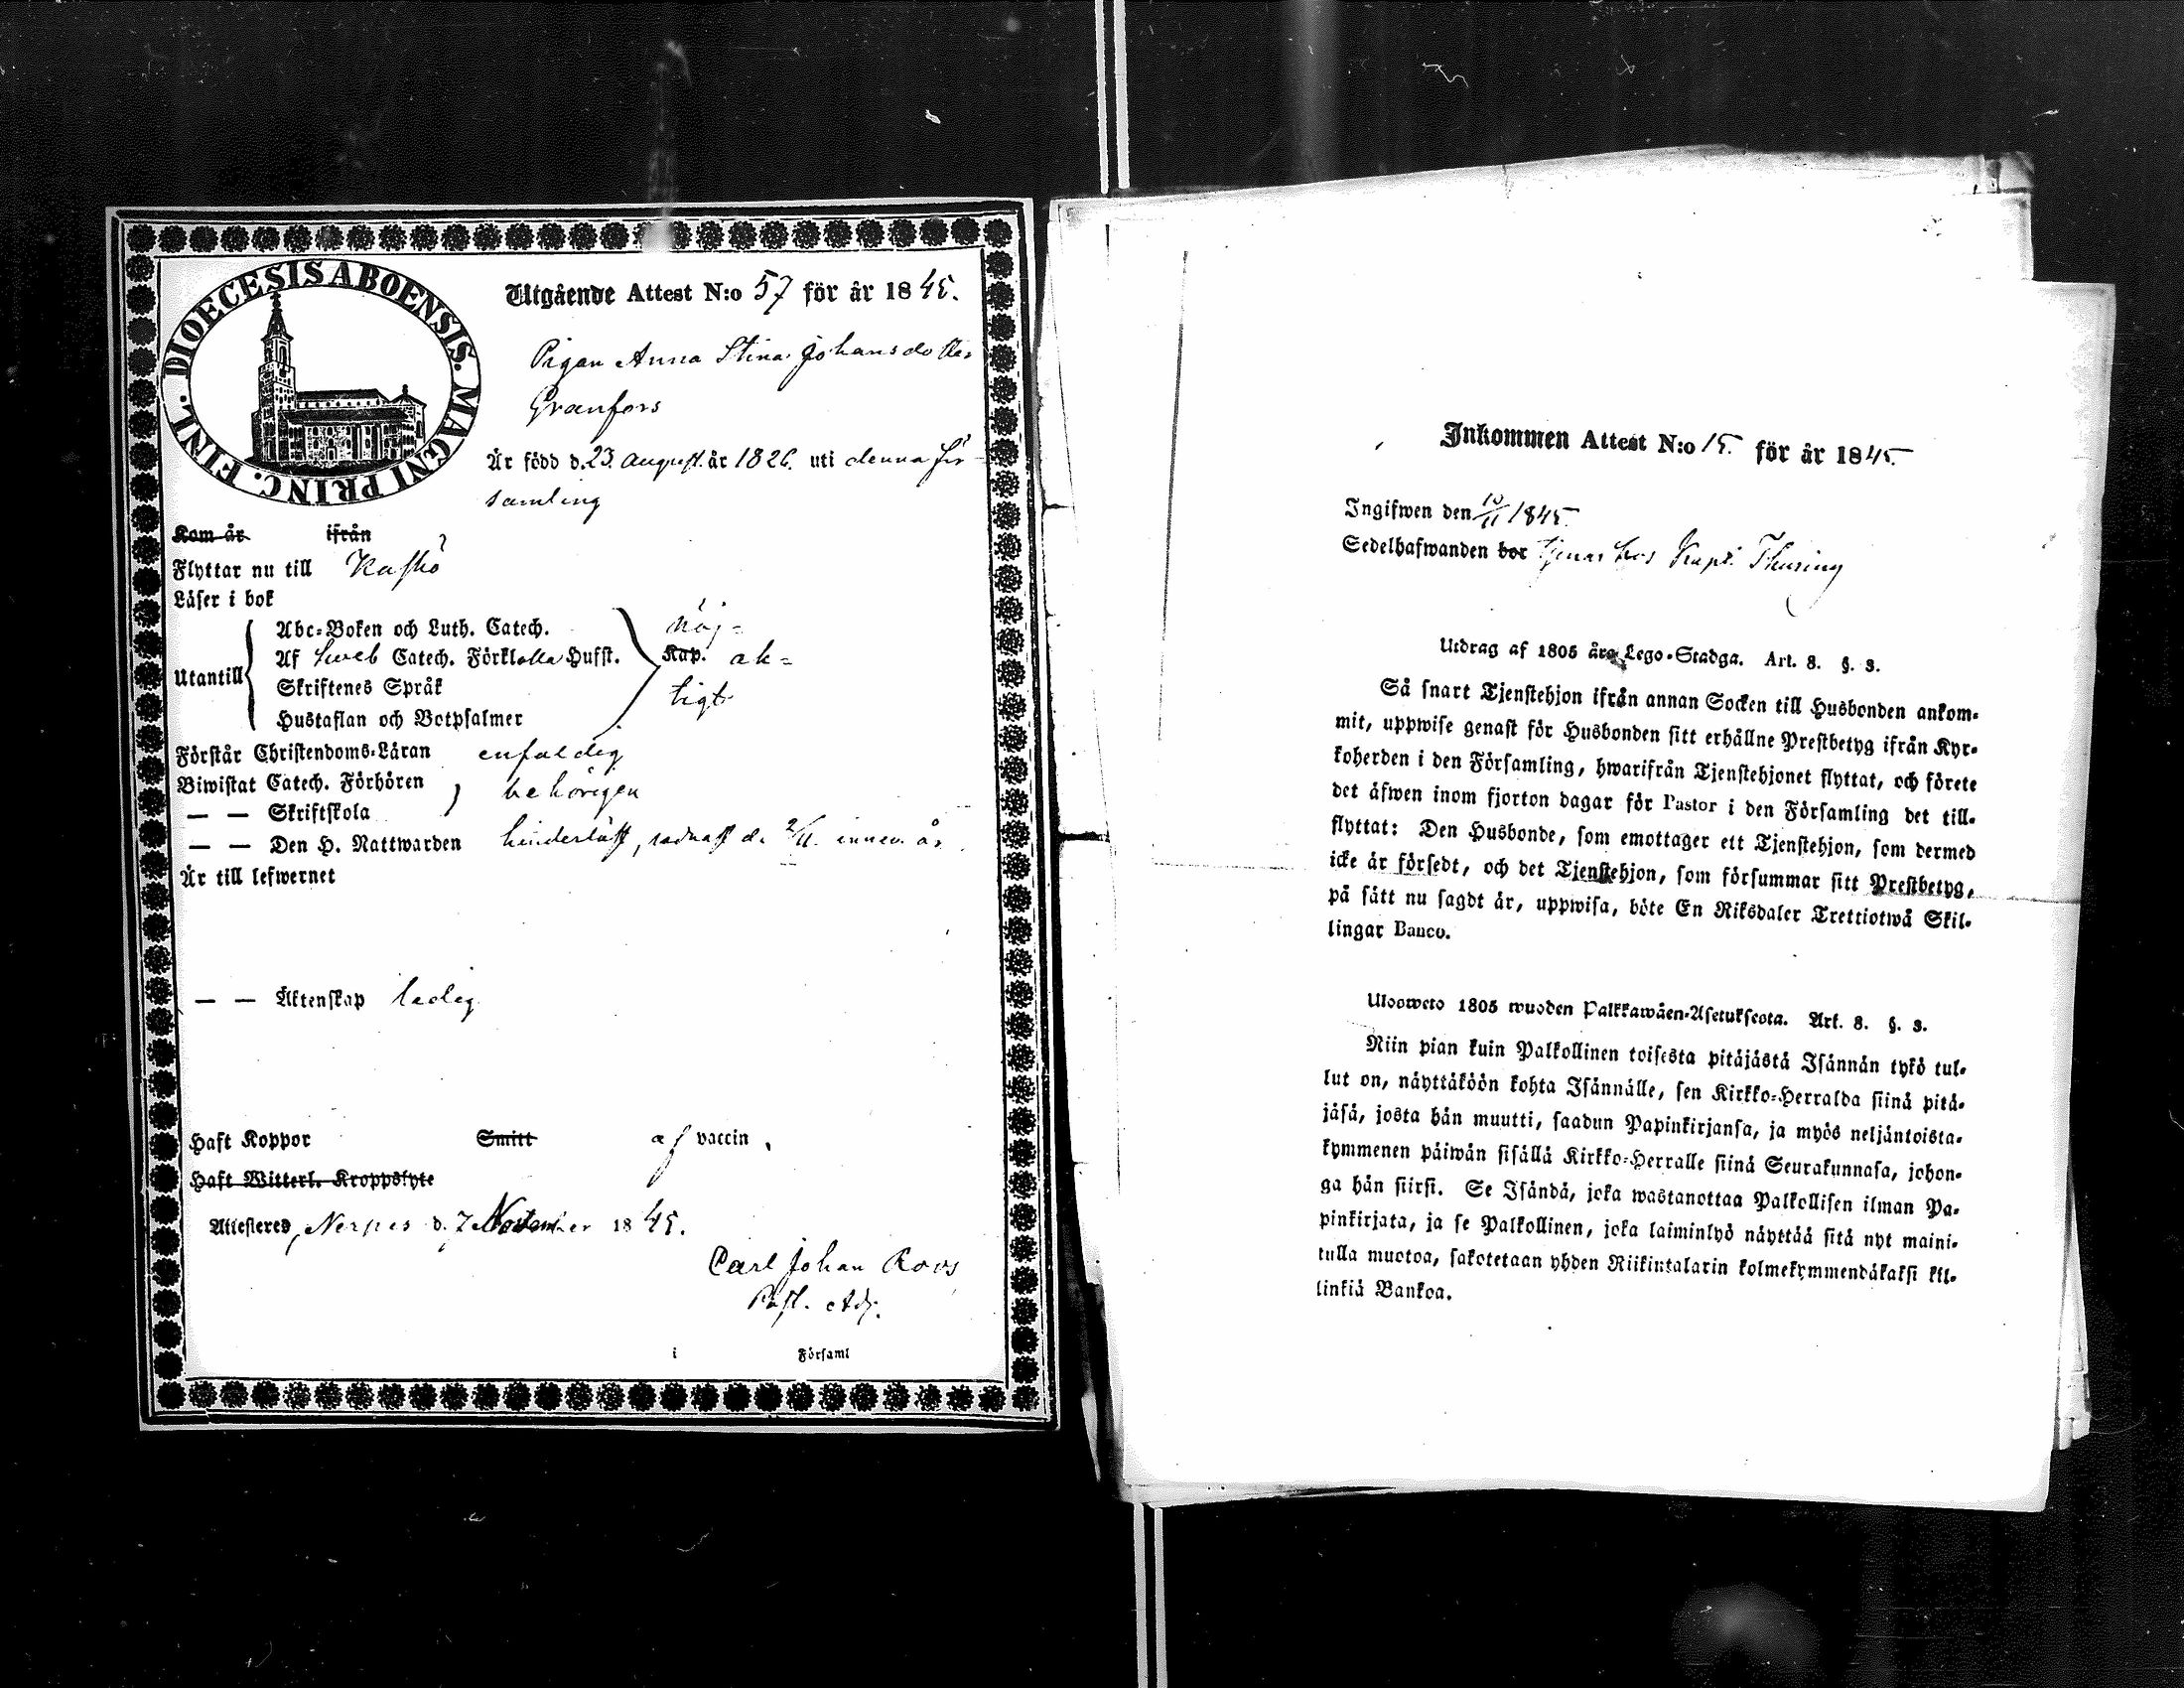 DIOECESIS ABOENSIS. MAGNI PRINC. FINL.
Utgående Attest N:o 57 för år 1845.
Pigan Anna Stina Johansdotter
Granfors
Är född d. 23 August. år 1826. uti denna för-
samling
Kom år ifrån
Flyttar nu till Kaskö
Läser i bok
Utantill
Abc-Boken och Luth. Catech.
Af Sweb Catech. Förklolla Husst.
Skriftenes Språk
Hustaflan och Botpsalmer
nöj-
Kap. ak-
tigt
Förstår Christendoms-Läran enfaldig
Biwistat Catech. Förhören
— — Skriftskola
behörigen
— — Den H. Nattwarden hinderlöst, sednast d. 2/11. innew. år.
Är till lefwernet
— — Äktenskap ledig
Haft Koppor Smitt af vaccin,
Haft Witterl. Kroppslyte
Attesteres, Nerpes d. 7 November 1845.
Carl Johan Roos
Past. Adj.
i Församl
Inkommen Attest N:o 15. för år 1845.
Ingifwen den 10/11 1845.
Sedelhafwanden bor tjenar hos Kapt. Thuring
Utdrag af 1805 års Lego-Stadga. Art. 8. §. 3.
Så snart Tjenstehjon ifrån annan Socken till Husbonden ankom-
mit, uppwise genast för Husbonden sitt erhållne Prestbetyg ifrån Kyr-
koherden i den Församling, hwarifrån Tjenstehjonet flyttat, och förete
det äfwen inom fjorton dagar för Pastor i den Församling det till-
flyttat: Den Husbonde, som emottager ett Tjenstehjon, som dermed
icke är försedt, och det Tjenstehjon, som försummar sitt Prestbetyg,
på sätt nu sagdt är, uppwisa, böte En Riksdaler Trettiotwå Skil-
lingar Banco.
Ulosweto 1805 wuoden Palkkawäen-Asetuksesta. Art. 8. §. 3.
Niin pian kuin Palkollinen toisesta pitäjästä Isännän tykö tul-
lut on, näyttäköön kohta Isännälle, sen Kirkko-Herralda siinä pitä-
jäsä, josta hän muutti, saadun Papinkirjansa, ja myös neljäntoista-
kymmenen päiwän sisällä Kirkko-Herralle siinä Seurakunnasa, johon-
ga hän siirsi. Se Isändä, joka wastanottaa Palkollisen ilman Pa-
pinkirjata, ja se Palkollinen, joka laiminlyö näyttää sitä nyt maini-
tulla muotoa, sakotetaan yhden Riikintalarin kolmekymmendäkaksi kil-
linkiä Bankoa.